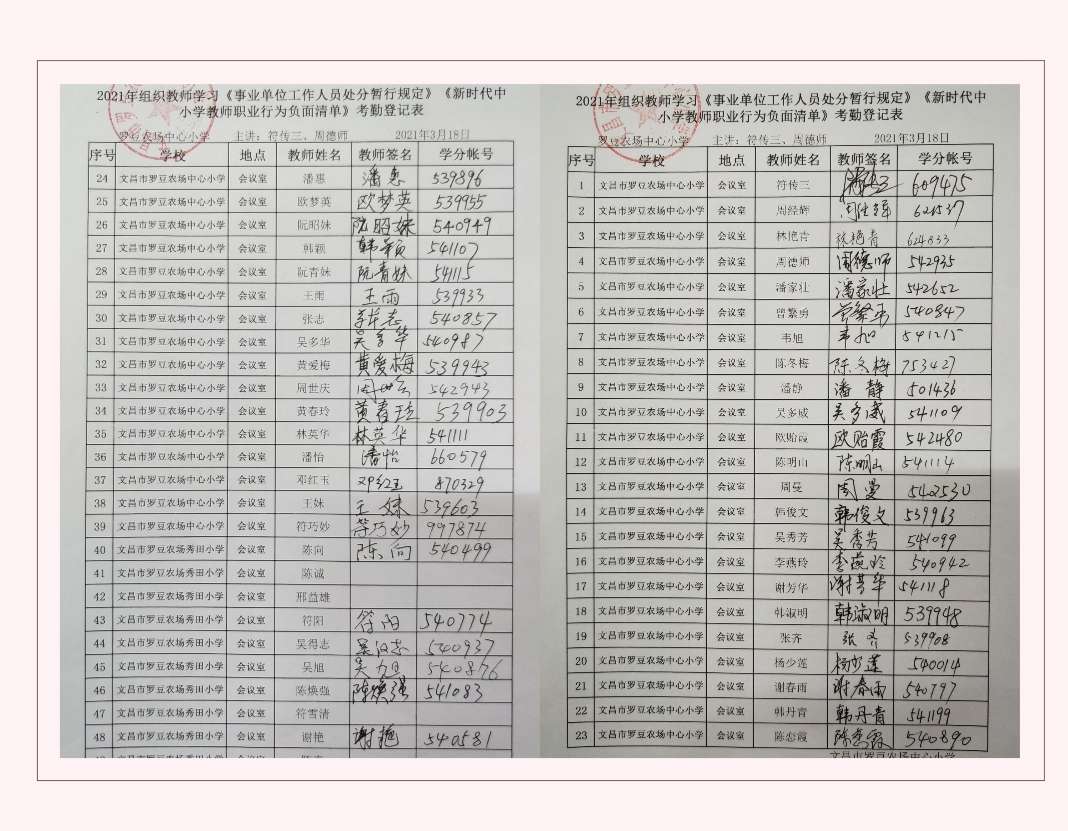 2021年组织教师学习《事业单位工作人员处分暂行规定》《新时代中
小学教师职业行为负面清单》考勤登记表
罗豆农场中心小学 主讲：符传三、周德师 2021年3月18日
序号 学校 地点 教师姓名 教师签名 学分帐号
24 文昌市罗豆农场中心小学 会议室 潘惠 潘惠 539896
25 文昌市罗豆农场中心小学 会议室 欧梦英 欧梦英 539955
26 文昌市罗豆农场中心小学 会议室 阮昭妹 阮昭妹 540949
27 文昌市罗豆农场中心小学 会议室 韩颖 韩颖 541107
28 文昌市罗豆农场中心小学 会议室 阮青妹 阮青妹 541115
29 文昌市罗豆农场中心小学 会议室 王雨 王雨 539933
30 文昌市罗豆农场中心小学 会议室 张志 540857
31 文昌市罗豆农场中心小学 会议室 吴多华 吴多华 540987
32 文昌市罗豆农场中心小学 会议室 黄爱梅 黄爱梅 539943
33 文昌市罗豆农场中心小学 会议室 周世庆 542943
34 文昌市罗豆农场中心小学 会议室 黄春玲 黄春玲 539903
35 文昌市罗豆农场中心小学 会议室 林英华 林英华 541111
36 文昌市罗豆农场中心小学 会议室 潘怡 潘怡 660579
37 文昌市罗豆农场中心小学 会议室 邓红玉 邓红玉 870329
38 文昌市罗豆农场中心小学 会议室 王妹 王妹 539603
39 文昌市罗豆农场中心小学 会议室 符巧妙 符巧妙 997874
40 文昌市罗豆农场秀田小学 会议室 陈向 陈向 540499
41 文昌市罗豆农场秀田小学 会议室 陈诚
42 文昌市罗豆农场秀田小学 会议室 邢益雄
43 文昌市罗豆农场秀田小学 会议室 符阳 符阳 540774
44 文昌市罗豆农场秀田小学 会议室 吴得志 540937
45 文昌市罗豆农场秀田小学 会议室 吴旭 540876
46 文昌市罗豆农场秀田小学 会议室 陈焕强 陈焕强 541083
47 文昌市罗豆农场秀田小学 会议室 符雪清
48 文昌市罗豆农场秀田小学 会议室 谢艳 谢艳 540581
2021年组织教师学习《事业单位工作人员处分暂行规定》《新时代中
小学教师职业行为负面清单》考勤登记表
罗豆农场中心小学 主讲：符传三、周德师 2021年3月18日
序号 学校 地点 教师姓名 教师签名 学分帐号
1 文昌市罗豆农场中心小学 会议室 符传三 609475
2 文昌市罗豆农场中心小学 会议室 周经辉 621537
3 文昌市罗豆农场中心小学 会议室 林艳青 林艳青 624833
4 文昌市罗豆农场中心小学 会议室 周德师 周德师 542935
5 文昌市罗豆农场中心小学 会议室 潘家壮 潘家壮 542652
6 文昌市罗豆农场中心小学 会议室 曾繁勇 曾繁勇 540847
7 文昌市罗豆农场中心小学 会议室 韦旭 韦旭 541215
8 文昌市罗豆农场中心小学 会议室 陈冬梅 陈冬梅 753427
9 文昌市罗豆农场中心小学 会议室 潘静 潘静 501436
10 文昌市罗豆农场中心小学 会议室 吴多威 吴多威 541109
11 文昌市罗豆农场中心小学 会议室 欧贻霞 欧贻霞 542480
12 文昌市罗豆农场中心小学 会议室 陈明山 陈明山 541114
13 文昌市罗豆农场中心小学 会议室 周曼 周曼 542530
14 文昌市罗豆农场中心小学 会议室 韩俊文 韩俊文 539963
15 文昌市罗豆农场中心小学 会议室 吴秀芳 吴秀芳 541099
16 文昌市罗豆农场中心小学 会议室 李燕玲 李燕玲 540942
17 文昌市罗豆农场中心小学 会议室 谢芳华 谢芳华 541118
18 文昌市罗豆农场中心小学 会议室 韩淑明 韩淑明 539948
19 文昌市罗豆农场中心小学 会议室 张齐 张齐 539908
20 文昌市罗豆农场中心小学 会议室 杨少莲 杨少莲 540014
21 文昌市罗豆农场中心小学 会议室 谢春雨 谢春雨 540797
22 文昌市罗豆农场中心小学 会议室 韩丹青 韩丹青 541199
23 文昌市罗豆农场中心小学 会议室 陈恋霞 陈恋霞 540890